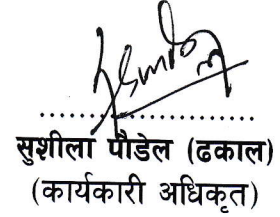 सुशीला पौडेल (ढकाल)
(कार्यकारी अधिकृत)